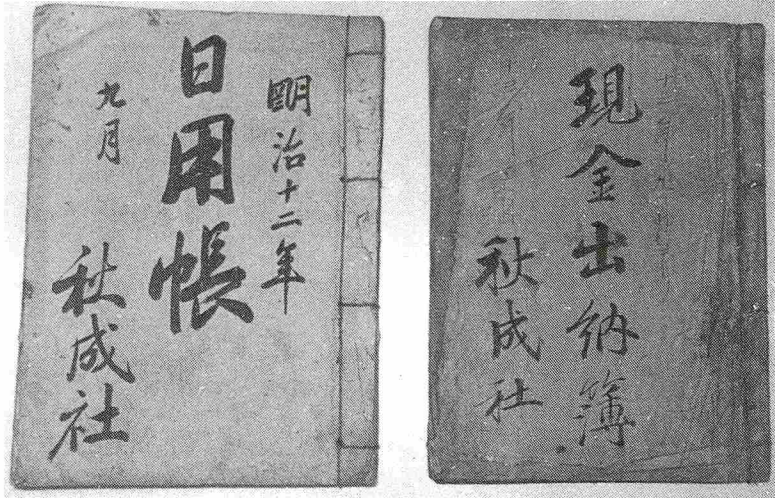 明治十二年
日用帳
九月
秋成社
現金出納簿
秋成社